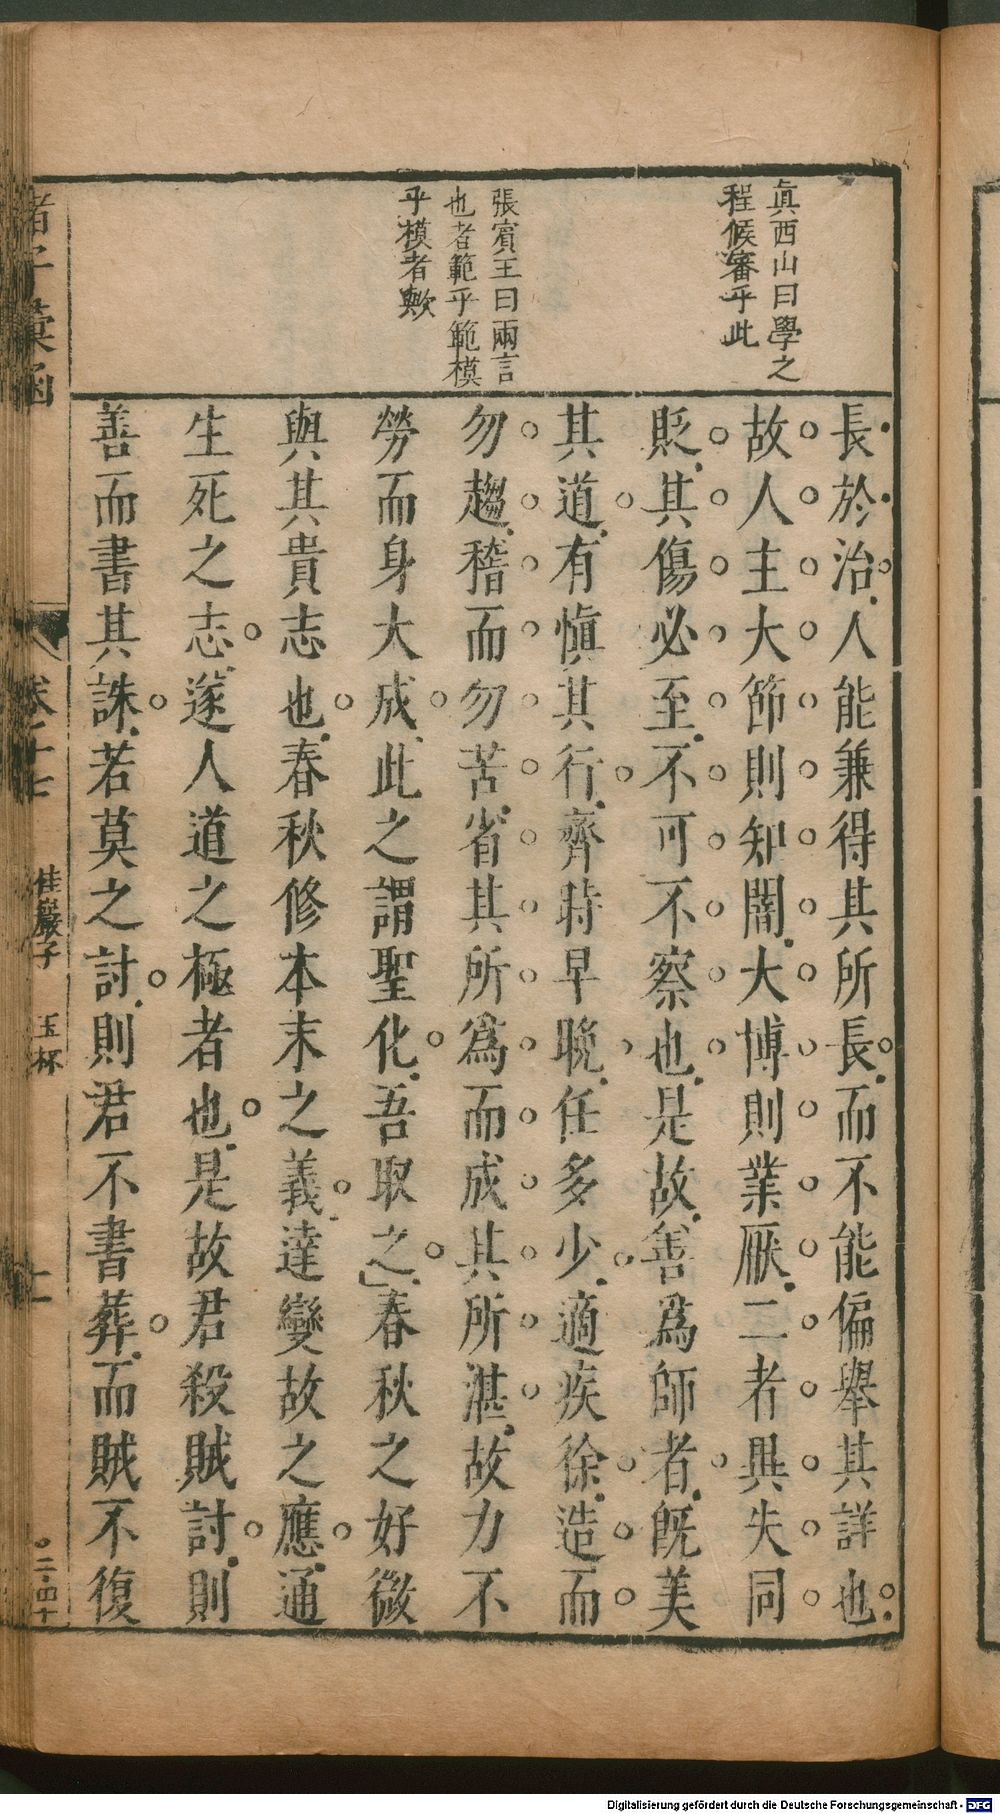 眞西山曰學之
程候審乎此
張賓王曰兩言
也者範乎範模
乎模者歟
長於治人能兼得其所長而不能偏舉其詳也
故人主大節則知闇大博則業厭二者異失同
貶其傷必至不可不察也是故善爲師者旣美
其道有愼其行齊時早晚任多少適疾徐造而
勿趨稽而勿苦省其所爲而成其所湛故力不
勞而身大成此之謂聖化吾取之春秋之好微
與其貴志也春秋修本末之義達變故之應通
生死之志遂人道之極者也是故君殺賊討則
善而書其誅若莫之討則君不書葬而賊不復
諸子彙函
卷二十七
桂巖子 玉杯
Digitalisierung gefördert durch die Deutsche Forschungsgemeinschaft - DFG